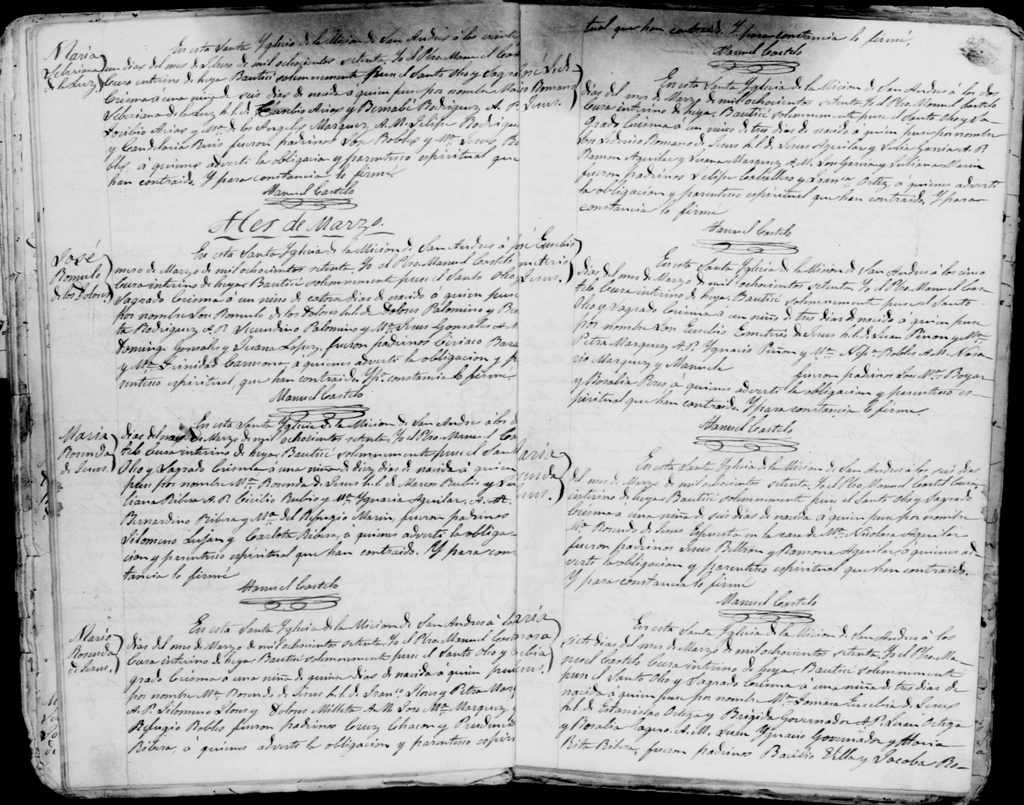 Maria
Seberiana
de la Luz
En esta Santa Yglecia de la Micion de San Andres á los veinte
un dias del mes de Febrero de mil ochocientos setenta. Yo el Pbro. Manuel Cast
Cura interino de hoya Bauticé solemnemente puse el Santo Oleo y Sagra
Crisma á una niña de seis dias de nacida á quien puse por nombre Maria
Seberiana de la Luz h. l. de Cecilio Arias y Bernabé Rodriguez A. P.
Cecilio Arias y Ma. de los Angeles Marquez, A. M. Felipe Rodriguez
y Candelaria Ruis fueron padrinos Robles y Ma. Jesus Ro
bles á quienes advertí la obligacion y parentesco espiritual que
han contraido. Y para constancia lo firmé
Manuel Castelo
Mes de Marzo.
José
Romulo
de los Dolores
En esta Santa Yglecia de la Micion de San Andres á
mero de Marzo de mil ochocientos setenta Yo el Pbro. Manuel Castelo
Cura interino de hoya Bauticé solemnemente puse el Santo Oleo
Sagrado Crisma á un niño de catorce dias de nacido á quien puse
por nombre José Romulo de los Dolores h. l. de Dolores Palomino y
Rodriguez A. P. Secundino Palomino y Ma. Jesus Gonsales A. M.
Domingo Gonsales y Juana Lopez, fueron padrinos Ciriaco
y Ma. Trinidad Carmona á quienes advertí la obligacion y pa
rentesco espiritual, que han contraido. Y pa. constancia lo firmé
Manuel Castelo
Maria
Rosenda
de Jesus.
En esta Santa Yglecia de la Micion de San Andres á los
dias del mes de Marzo de mil ochocientos setenta Yo el Pbro. Manuel Cas
telo Cura interino de hoya Bauticé solemnemente puse el Santo
Oleo y Sagrado Crisma á una niña de diez dias de nacida á quien
puse por nombre Ma. Rosenda de Jesus h. l. de Marcos Rubio y
liana Ribera A. P. Cecilio Rubio y Ma. Ygnacia Aguilar, A. M.
Bernardino Ribera y Ma. del Refugio Marin, fueron padrinos
Filomeno Lujan y Carlota Ribera, á quienes advertí la obliga-
cion y parentesco espiritual que han contraido. Y para cons
tancia lo firmé
Manuel Castelo
Maria
Rosenda
de Jesus.
En esta Santa Yglecia de la Micion de San Andres á
dias del mes de Marzo de mil ochocientos setenta Yo el Pbro. Manuel Cas
Cura interino de hoya Bauticé solemnemente puse el Santo Oleo y
grado Crisma á una niña de quince dias de nacida á quien puse
por nombre Ma. Rosenda de Jesus h. l. de Franco. Flores y Petra Marq
A. P. Filomeno Flores y Dolores A. M. José Ma. Marquez y
Refugio Robles fueron padrinos Cruz Chacon y Prudencia
Ribera, á quienes advertí la obligacion y parentesco espiri
tual que han contraido. Y para constancia lo firmé.
Manuel Castelo
Romano
Jesus.
En esta Santa Yglecia de la Micion de San Andres á los dos
dias del mes de Marzo de mil ochocientos setenta Yo el Pbro. Manuel Castelo
Cura interino de hoya Bauticé solemnemente puse el Santo Oleo y Sa-
grado Crisma á un niño de tres dias de nacido á quien puse por nombre
José Romano de Jesus h. l. de Jesus Aguilar y Garcia A. P.
Ramon Aguilar y Juana Marquez A. M. José Garcia y Juliana
fueron padrinos Felipe Caballero y Franca. Ortiz, á quienes advertí
la obligacion y parentesco espiritual que han contraido. Y para
constancia lo firmé
Manuel Castelo
José Eusebio
Emeterio
Jesus.
En esta Santa Yglecia de la Micion de San Andres á los cinco
dias del mes de Marzo de mil ochocientos setenta Yo el Pbro. Manuel Cas
telo Cura interino de hoya Bauticé solemnemente puse el Santo
Oleo y Sagrado Crisma á un niño de tres dias de nacido á quien puse
por nombre José Eusebio Emeterio de Jesus h. l. de Juan Piñon y Ma.
Petra Marquez A. P. Ygnacio Piñon y Ma. Robles A. M. Nasa
rio Marquez y Manuela fueron padrinos José Ma.
y Rosalia á quienes advertí la obligacion y parentesco es-
piritual que han contraido. Y para constancia lo firmé
Manuel Castelo
Maria
Rosenda
Jesus.
En esta Santa Yglecia de la Micion de San Andres á los seis dias
del mes de Marzo de mil ochocientos setenta Yo el Pbro. Manuel Castelo Cura
interino de hoya Bauticé solemnemente puse el Santo Oleo y Sagrado
Crisma á una niña de seis dias de nacida á quien puse por nombre
Ma. Rosenda de Jesus Espuesta en la casa de Ma. Nicolasa Aguilar
fueron padrinos Jesus Beltran y Ramona Aguilar á quienes ad-
vertí la obligacion y parentesco espiritual que han contraido.
Y para constancia lo firmé
Manuel Castelo
Maria
Eusebia
Jesus.
En esta Santa Yglecia de la Micion de San Andres á los
siete dias del mes de Marzo de mil ochocientos setenta Yo el Pbro. Ma-
nuel Castelo Cura interino de hoya Bauticé solemnemente
puse el Santo Oleo y Sagrado Crisma á una niña de tres dias de
nacida á quien puse por nombre Ma. Eusebia de Jesus
h. l. de Estanislao Ortega y Brigida Governador A. P. Juan Ortega
y Rosalia A. M. Juan Ygnacio Governador y Maria
Rita Ribera, fueron padrinos Basilio y Jacoba Ro-